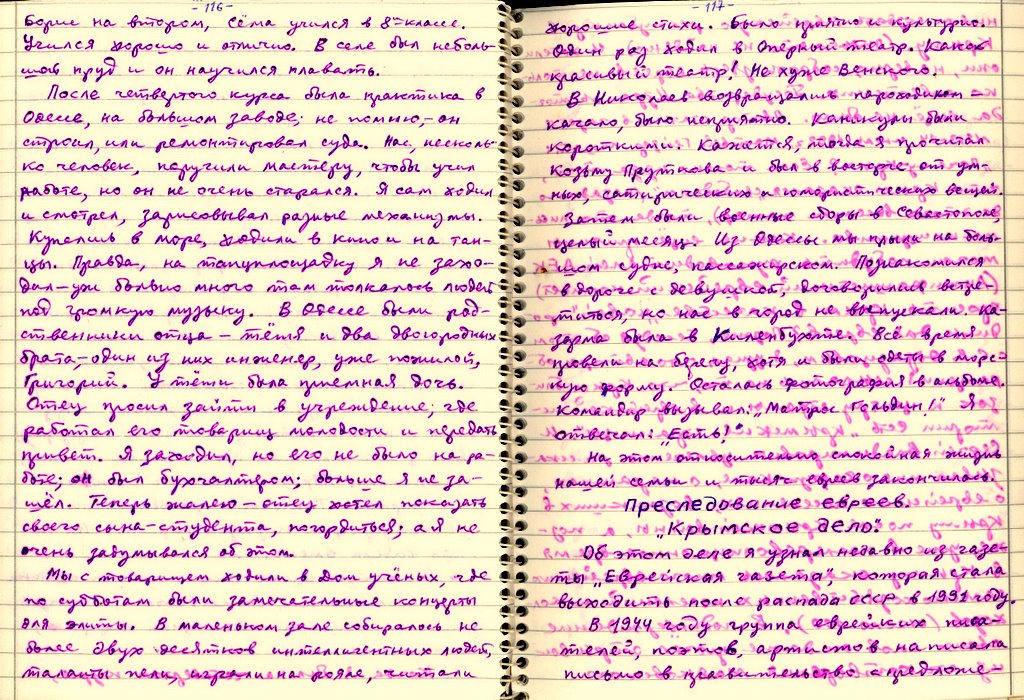 - 116 -
Борис на втором, Сёма учился в 8м классе.
Учился хорошо и отлично. В селе был неболь-
шой пруд и он научился плавать.
После четвертого курса была практика в
Одессе, на большом заводе; не помню, - он
строил, или ремонтировал суда. Нас, несколь-
ко человек, поручили мастеру, чтобы учил
работе, но он не очень старался. Я сам ходил
и смотрел, зарисовывал разные механизмы.
Купались в море, ходили в кино и на тан-
цы. Правда, на танцплощадку я не захо-
дил - уж больно много там толкалось людей
под громкую музыку. В Одессе были род-
ственники отца - тётя и два двоюродных
брата, - один из них инженер, уже пожилой,
Григорий. У тёти была приемная дочь.
Отец просил зайти в учреждение, где
работал его товарищ молодости и передать
привет. Я заходил, но его не было на ра-
боте; он был бухгалтером; больше я не за-
шёл. Теперь жалею - отец хотел показать
своего сына-студента, погордиться; а я не
очень задумывался об этом.
Мы с товарищем ходили в Дом учёных, где
по субботам были замечательные концерты
для элиты. В маленьком зале собиралось не
более двух десятков интеллигентных людей,
таланты пели, играли на рояле, читали
- 117 -
хорошие стихи. Было приятно и культурно.
Один раз ходил в Оперный театр. Какой
красивый театр! Не хуже Венского.
В Николаев возвращались пароходиком -
качало, было неприятно. Каникулы были
короткими. Кажется, тогда я прочитал
Козьму Пруткова и был в восторге от ум-
ных, сатирических и юмористических вещей.
Затем были военные сборы в Севастополе,
целый месяц. Из Одессы мы плыли на боль-
шом судне, пассажирском. Познакомился
в дороге с девушкой, договорились встре-
титься, но нас в город не выпускали - ка-
зарма была в Киленбухте. Всё время
провели на берегу, хотя и были одеты в морс-
кую форму. Осталась фотография в альбоме.
Командир вызывал: „Матрос Гольдин!" Я
отвечал: „Есть!"
На этом относительно спокойная жизнь
нашей семьи и тысяч евреев закончилась.
Преследование евреев.
„Крымское дело".
Об этом деле я узнал недавно из газе-
ты „Еврейская газета", которая стала
выходить после распада СССР в 1991 году.
В 1944 году группа еврейских писа-
телей, поэтов, артистов написала
письмо в правительство с предложе-